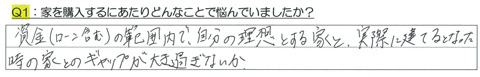 Q1:家を購入するにあたりどんなことで悩んでいましたか?
資金(ローン含む)の範囲内で、自分の理想とする家と、実際に建てるとなった
時の家とのギャップが大き過ぎないか